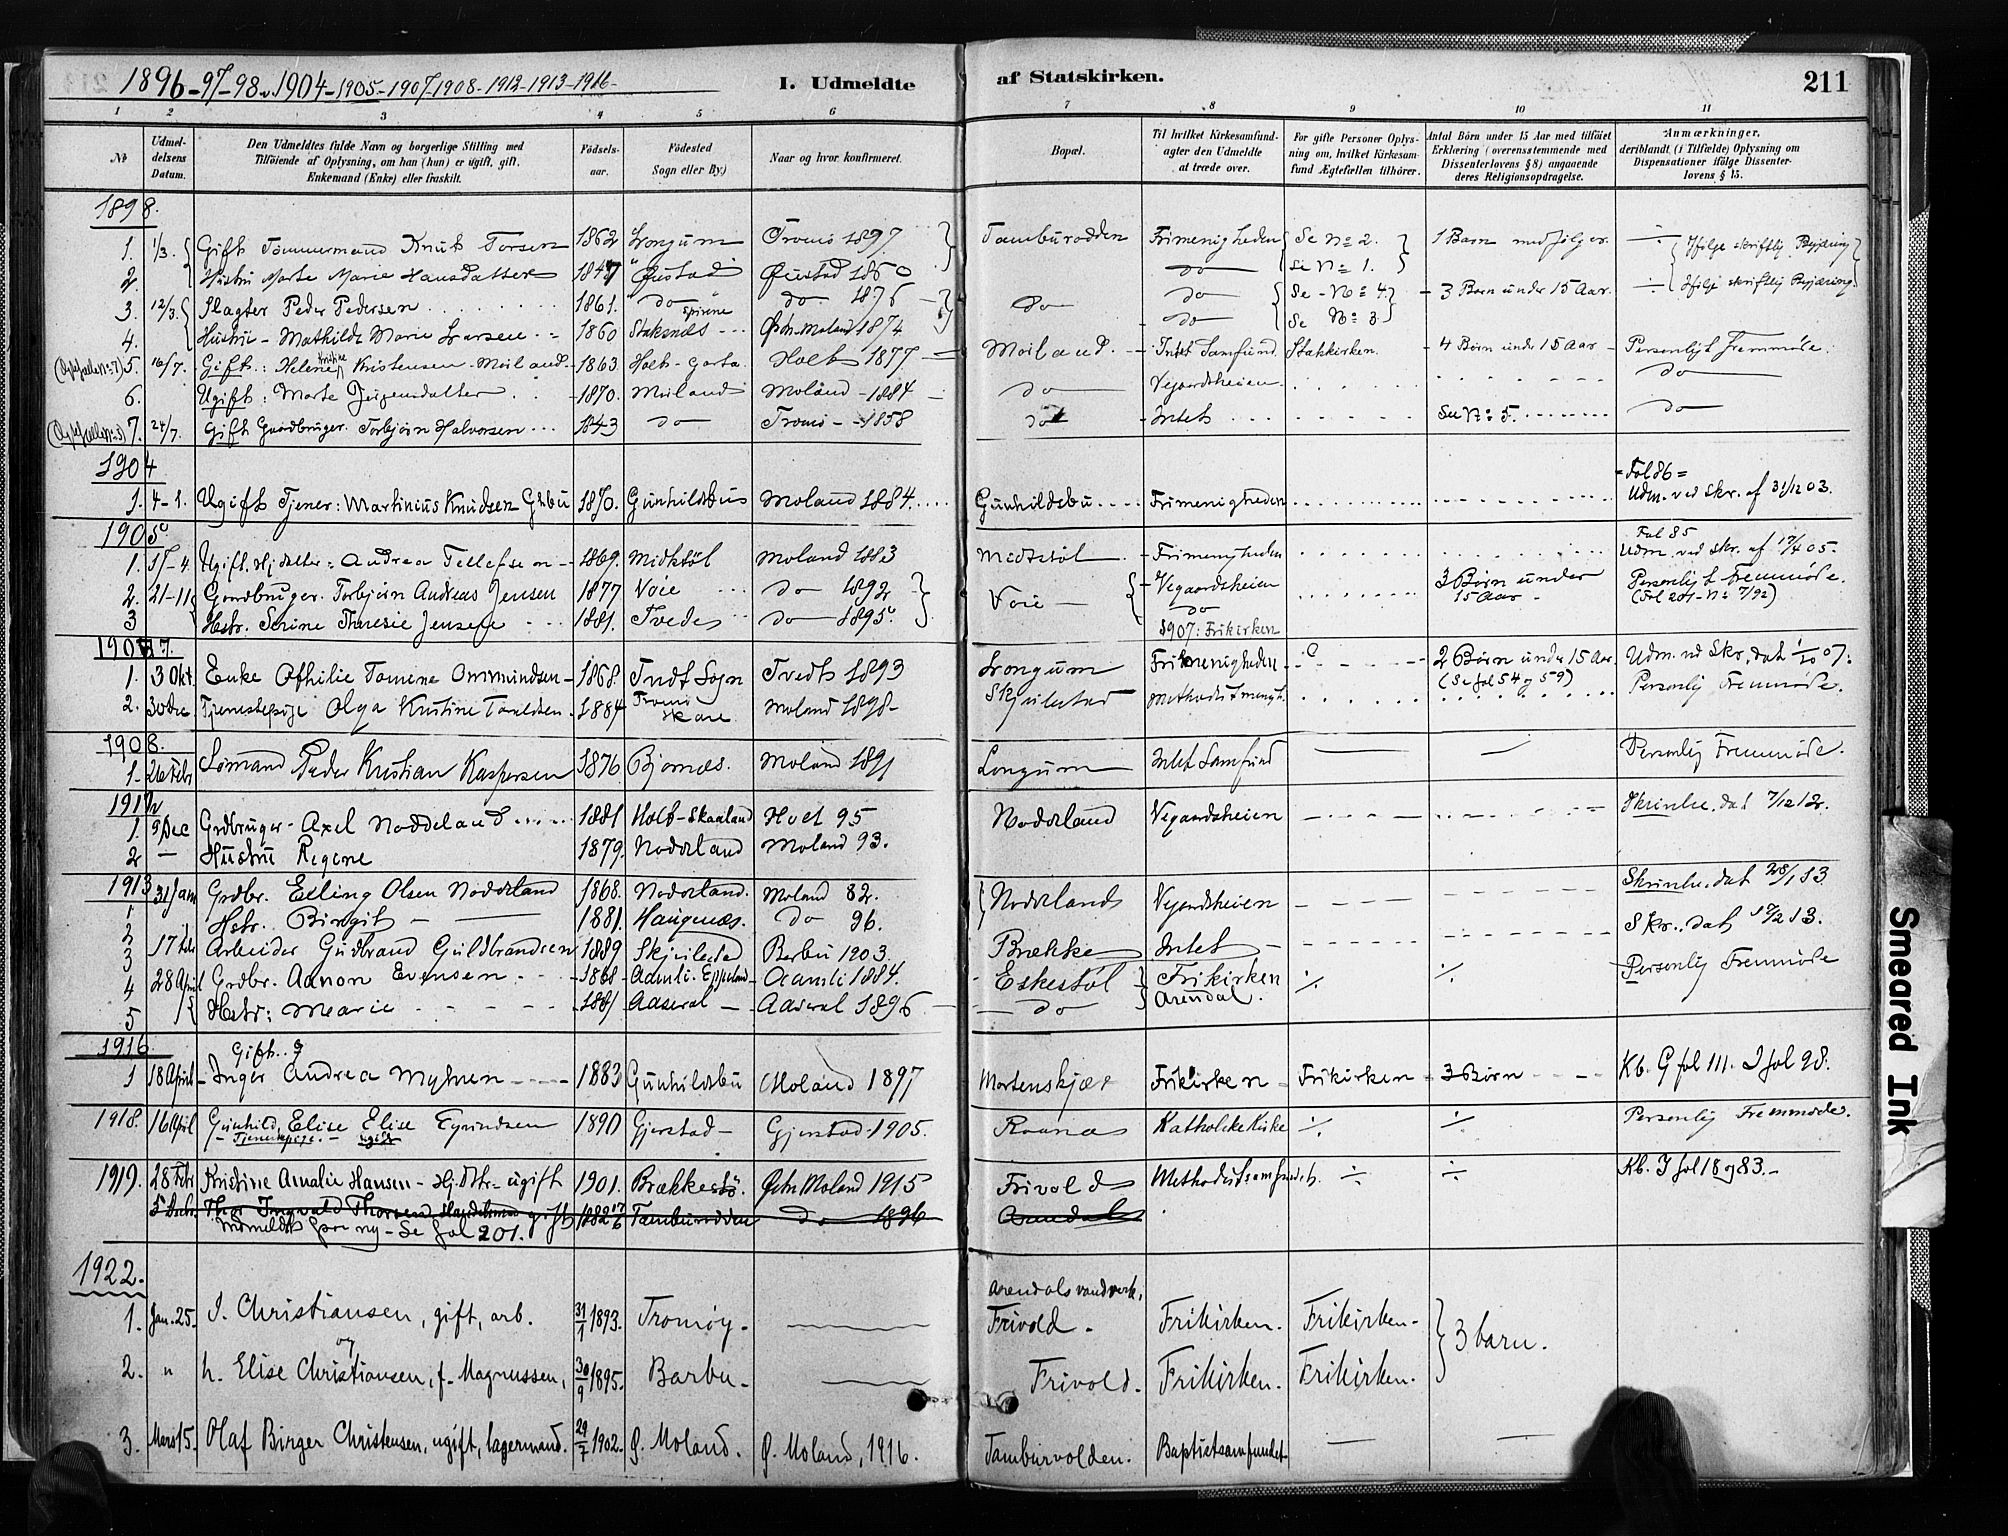 1896-97-98-1904-1905-1907-1908-1912-1913-1916-
I. Udmeldte af Statskirken.
211
1 2 3 4 5 6 7 8 9 10 11
№
Udmeldelsens Datum.
Den Udmeldtes fulde Navn og borgerlige Stilling med Tilføiende af Oplysning, om han (hun) er ugift, gift, Enkemand (Enke) eller fraskilt.
Fødselsaar.
Fødested Sogn eller By.)
Naar og hvor konfirmeret.
Bopæl.
Til hvilket Kirkesamfund agter den Udmeldte at træde over.
For gifte Personer Oplysning om, hvilket Kirkesamfund Ægtefællen tilhører.
Antal Børn under 15 Aar med tilføiet Erklæring (overensstemmende med Dissenterlovens § 8) angaaende deres Religionsopdragelse.
Anmærkninger, deriblandt (i Tilfælde) Oplysning om Dispensationer ifølge Dissenterlovens § 15.
1898.
1. 1/3. Gift Tømmermand Knut Torsen 1862 Longum Tromö 1897 Tamburodden Frimenigheden Se No 2. 1 Barn medfølger Ifølge skriftlig
2. Hustru Marte Marie Hansdatter 1847 Øiestad Øiestad 1860 do Se No 1. Ifølge skriftlig
3. 12/3. Slagter Peder Pedersen 1861. do do 1876 do do Se No 4. 3 Børn under 15 Aar.
4. Hustru - Mathilde Marie Larsen 1860 Staksnæs Østr. Moland 1874 do Se No 3.
5. 16/7. Gift: Helene Kristine Kristensen Moiland 1863 Holt Holt 1877 Moiland. Intet Samfund Statskirken. 4 Børn under 15 Aar Personligt Fremmøde.
6. Ugift: Marte Jørgensdatter 1870. Moiland Moland 1884 do Vegaardsheien do
7. 24/7. Gift Gaardbruger Torbjørn Halvorsen 1843 do Tromö 1858 do Intet See No 5. do
1904
1. 4-1. Ugift Tjener: Martinius Knudsen Gbu 1870. Gunhildsbu Moland 1884 Gunhildsbu Frimenigheden Fol 86 = Udm. ved Skr. af 31/12 03.
1905
1. 17-4 Ugift Hj.datter: Andrea Tellefsen 1869. Midtstöl Moland 1883 Midtstöl Frimenigheden Fol 85 Udm. ved skr. af 17/4 05.
2. 21-11 Gaardbruger Torbjørn Andreas Jensen 1877 Voie do 1892 Voie Vegaardsheien 3 Børn under 15 Aar Personligt Fremmöde. (Fol 201 - No 7/92)
3 Hstr. Serine Theresie Jensen 1881. Tvede do 1895 do 1907: Frikirken
1907.
1. 3 Okt. Enke Othilie Tomine Ommundsen 1868. Tvedt Sogn Tvedt 1893 Longum Frimenigheden 2 Børn under 15 Aar (Se fol 54 og 59) Udm. ved Skr. dat 1/10 07.
2. 30 Dec Tjenestepige Olga Kristine Taraldsen 1884 Tromö Moland 1898 Skjulestad Methodistmenigh. Personlig Fremmøde.
1908.
1. 26 Febr Sømand Peder Kristian Kaspersen 1876 Bjornæs. Moland 1891 Longum Intet Samfund Personlig Fremmøde.
1912
1. 9 Dec Grdbruger - Axel Noddeland 1881 Holt-Skaaland Holt 95 Noddeland Vegaardsheien Skrivelse dat 7/12 12.
2 Hustru Regine 1879. Noddeland Moland 93.
1913
1 31 Jan Grdbr. Elling Olsen Noddeland 1868. Noddeland. Moland 82. Noddeland Vegardsheien Skrivelse dat 28/1 13
2 Hstr. Birgit 1881. Haugenæs. do 96.
3 17 Febr Arbeider Gudbrand Guldbrandsen 1889 Skjulestad Barbu 1903. Brække Intet Skr. dat 17/2 13.
4 28 April Grdbr. Aanon Evensen 1868 Aamli Aamli 1884. Eskestøl Frikirken Arendal. Personlig Fremmöde
5 Hstr: Marie 1881 Aaseral Aaseral 1896 do
1916
1 18 April Gift Inger Andrea Myhren 1883 Gunhildsbu Moland 1897 Mortenskjær Frikirken Frikirken 3 Børn Kb. G fol 111. I fol 98.
1918. 16 April Gunhild Elise Elise Eyvindsen Tjenestepige ugift 1890 Gjerstad Gjerstad 1905. Raanæs Katholske Kirke Personlig Fremmøde.
1919. 28 Febr Kristine Amalie Hansen - Hj. Dtr. ugift 1901. Brækkestö. Østr. Moland 1915 Frivold Methodistsamfundet. Kb. I fol 18 og 83.
5 Thor Ingvald Thorsen gift 1882 Tamburodden do 1896 Arendal
Indmeldt paa ny - Se fol 201.
1922.
1. Jan. 25. J. Christiansen, gift, arb. 31/1 1893. Tromøy. Arendals vandverk, Frivold. Frikirken. Frikirken. 3 barn.
og
2. " h. Elise Christiansen, f. Magnussen, 30/9 1895. Barbu. Frivold. Frikirken. Frikirken.
3. Mars 15. Olaf Birger Christensen, ugift, lagermand. 29/7 1902. Ø. Moland. Ø. Moland, 1916. Tamburvolden. Baptistsamfundet
Smeared Ink